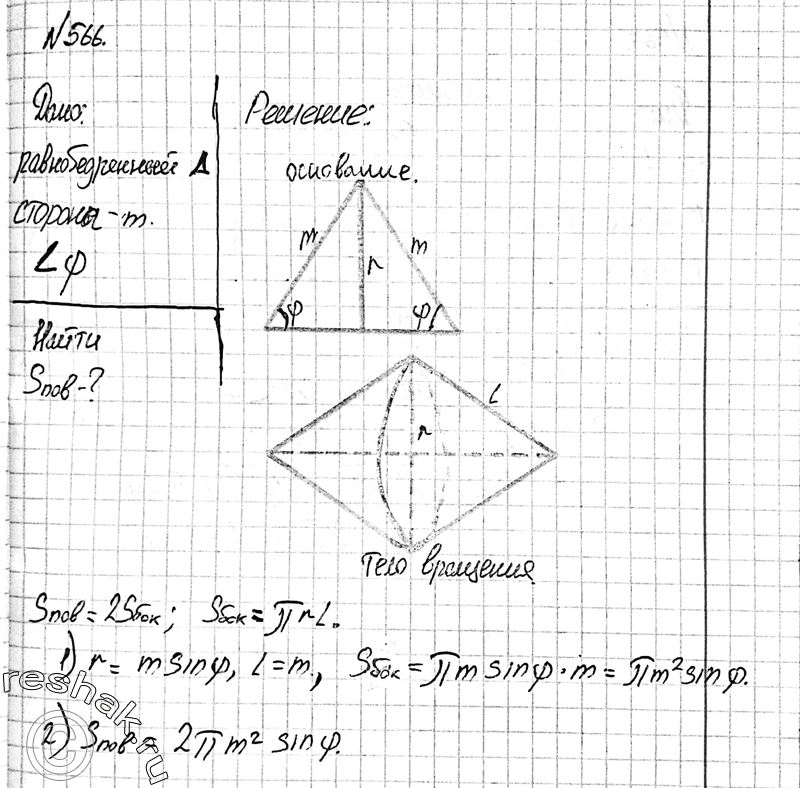 №566.
Дано:
равнобедренный Δ
стороны - m.
∠φ
Найти
Sпов-?
Решение:
основание.
m m
r
φ φ
L
r
Тело вращения
Sпов = 2Sбок; Sбок = πrL.
1) r = m sinφ, L = m, Sбок = πm sinφ · m = πm² sinφ.
2) Sпов = 2πm² sinφ.
reshak.ru
©